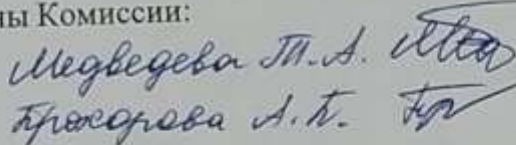 ны Комиссии:
Медведева Т.А.
Прохорова А.П.